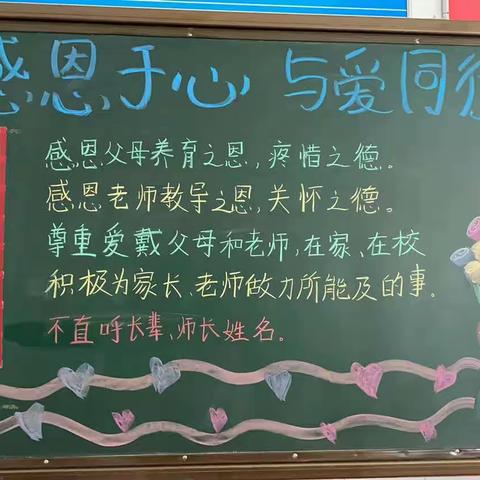 感恩于心 与爱同行
感恩父母养育之恩，疼惜之德。
感恩老师教导之恩，关怀之德。
尊重爱戴父母和老师，在家、在校
积极为家长、老师做力所能及的事。
不直呼长辈、师长姓名。